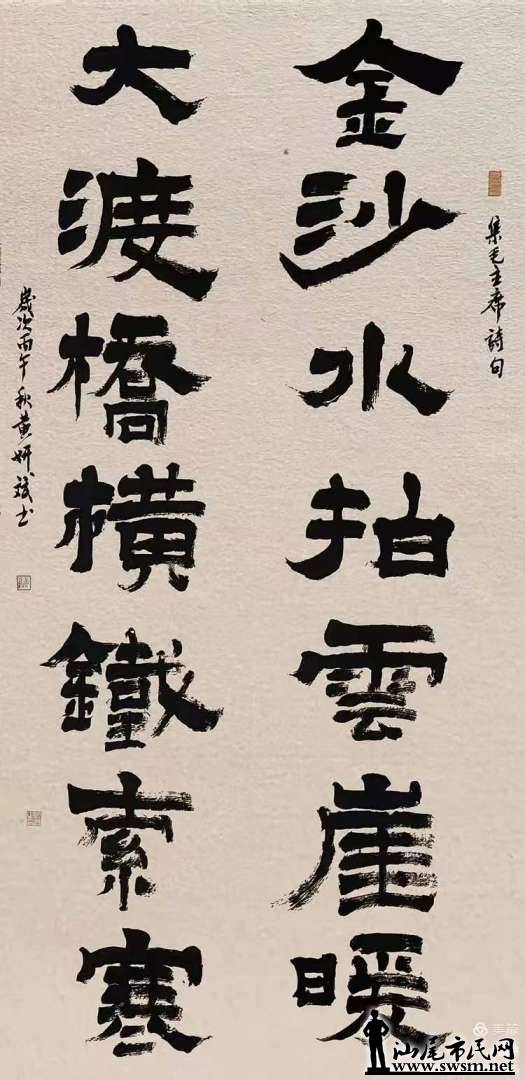 集毛主席詩句
金沙水拍雲崖暖
大渡橋橫鐵索寒
歲次丙午秋黄妍斌书
汕尾市民网
www.swsm.net